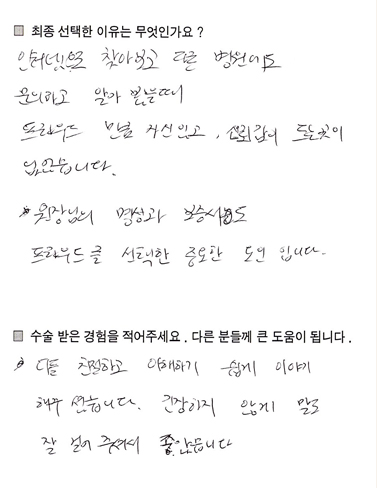 최종 선택한 이유는 무엇인가요 ?
인터넷으로 찾아보고 다른 병원에도
문의하고 알아 봤을때
프라우드 만큼 자신있고, 신뢰감이 드는곳이
없었습니다.
* 원장님의 명성과 보증서비스도
프라우드를 선택한 중요한 요인 입니다.
수술 받은 경험을 적어주세요 . 다른 분들께 큰 도움이 됩니다 .
* 다들 친절하고 이해하기 쉽게 이야기
해주 셨습니다. 긴장하지 않게 말도
잘 걸어 주셔서 좋았습니다